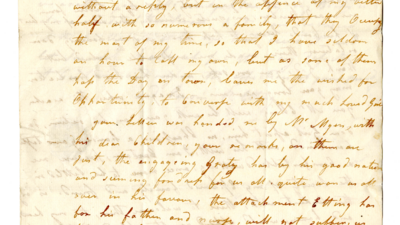 without a reply, but in the absence of my better
half with so numerous a family, that they Occupy
the most of my time, so that I have seldom
an hour to call my own, but as some of them
the Day in town, leave me the wished for
Opportunity to converse with my much loved
your letter was handed me by Mr Myers, with
his dear Children, your remarks on them are
just, the engaging has by his good nature
and for us all quite won us all
over in his favour, the attachment Etting has
for his father and will not suffer